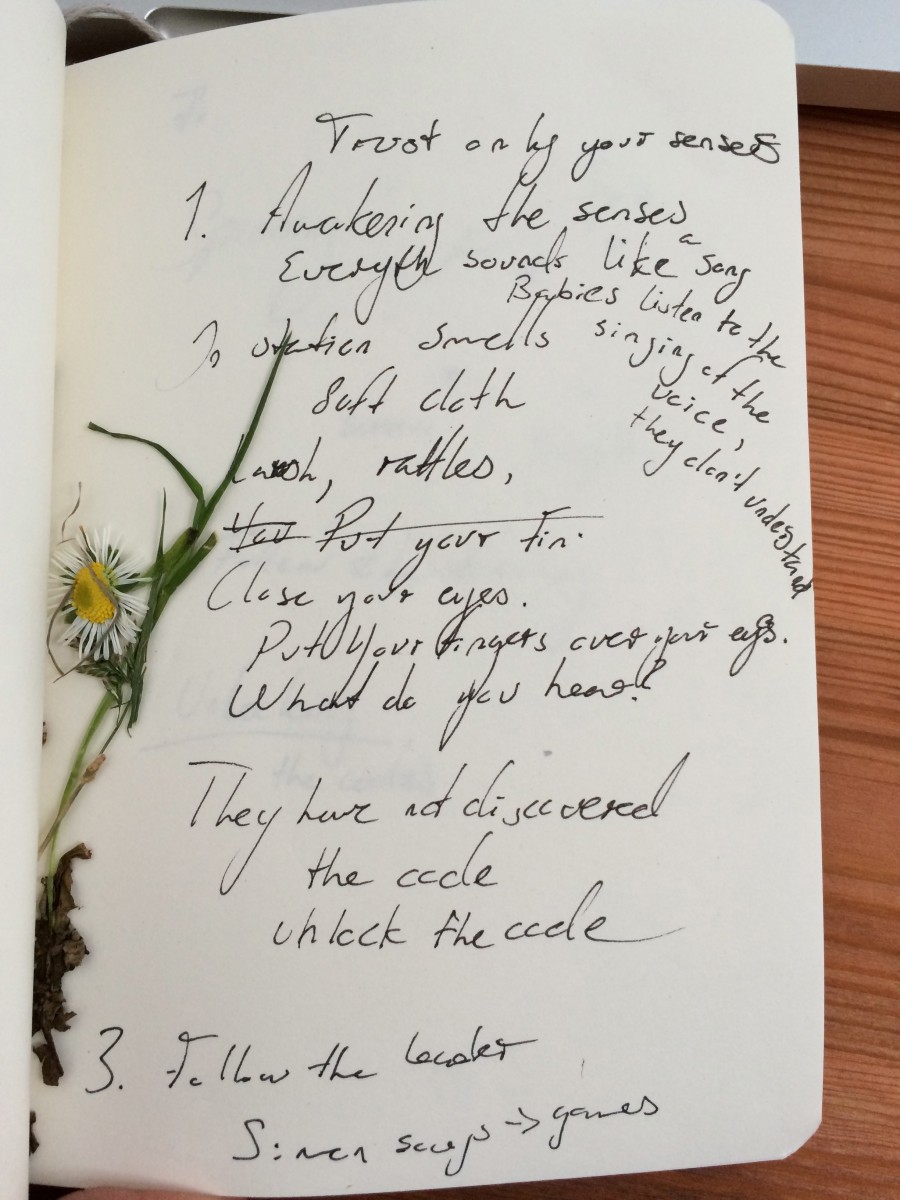 Trust only your senses
1. Awakening the senses
Everyth sounds like a song
Babies listen to the
singing of the
voice,
they don't understand
smells
Soft cloth
rattles,
You Put your fin.
Close your eyes.
Put your fingers over your eyes.
What do you hear?
They have not discovered
the code
unlock the code
3. Follow the leader
Simon says -> games